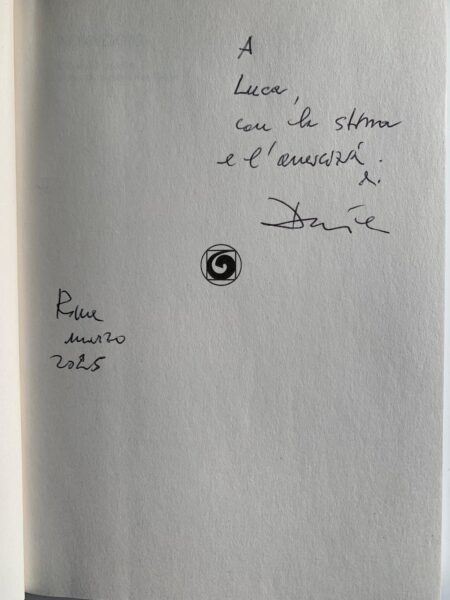 A
Luca,
con la stima
e l'amicizia
di
Roma
marzo
2025